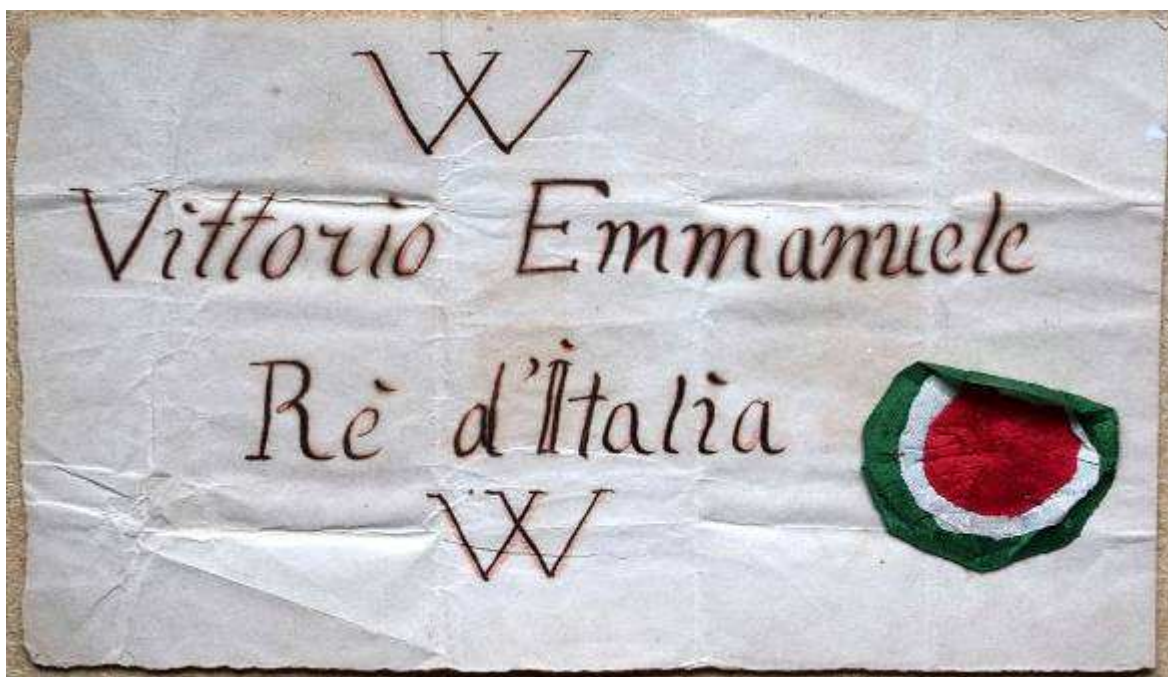 W
Vittorio Emmanuele
Rè d'Italia
W